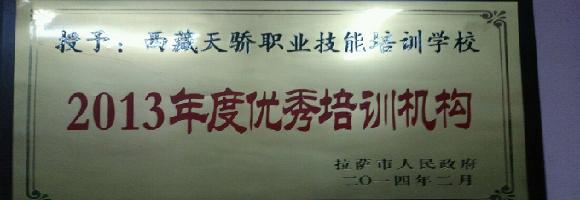 授予：西藏天骄职业技能培训学校
2013年度优秀培训机构
拉萨市人民政府
二〇一四年二月